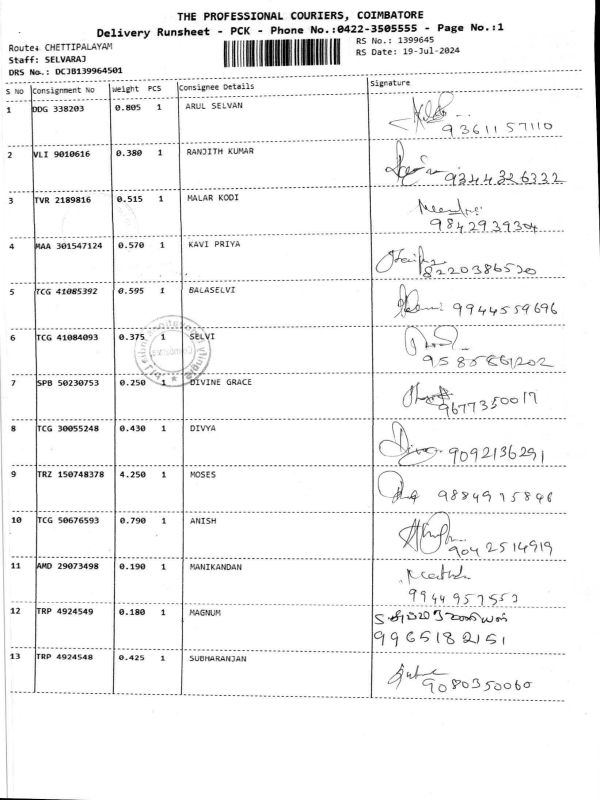 THE PROFESSIONAL COURIERS, COIMBATORE
Delivery Runsheet - PCK - Phone No.:0422-3505555 - Page No.:1
Route: CHETTIPALAYAM
RS No.: 1399645
Staff: SELVARAJ
RS Date: 19-Jul-2024
DRS No.: DCJB139964501
S No Consignment No Weight PCS Consignee Details Signature
1 DDG 338203 0.805 1 ARUL SELVAN
9361157110
2 VLI 9010616 0.380 1 RANJITH KUMAR
9344326332
3 TVR 2189816 0.515 1 MALAR KODI
9842939304
4 MAA 301547124 0.570 1 KAVI PRIYA
8220386520
5 TCG 41085392 0.595 1 BALASELVI
9944559696
6 TCG 41084093 0.375 1 SELVI
9585861202
7 SPB 50230753 0.250 1 DIVINE GRACE
9677350017
8 TCG 30055248 0.430 1 DIVYA
9092136291
9 TRZ 150748378 4.250 1 MOSES
9884975846
10 TCG 50676593 0.790 1 ANISH
9042514919
11 AMD 29073498 0.190 1 MANIKANDAN
9944957553
12 TRP 4924549 0.180 1 MAGNUM
9965182151
13 TRP 4924548 0.425 1 SUBHARANJAN
9080350060